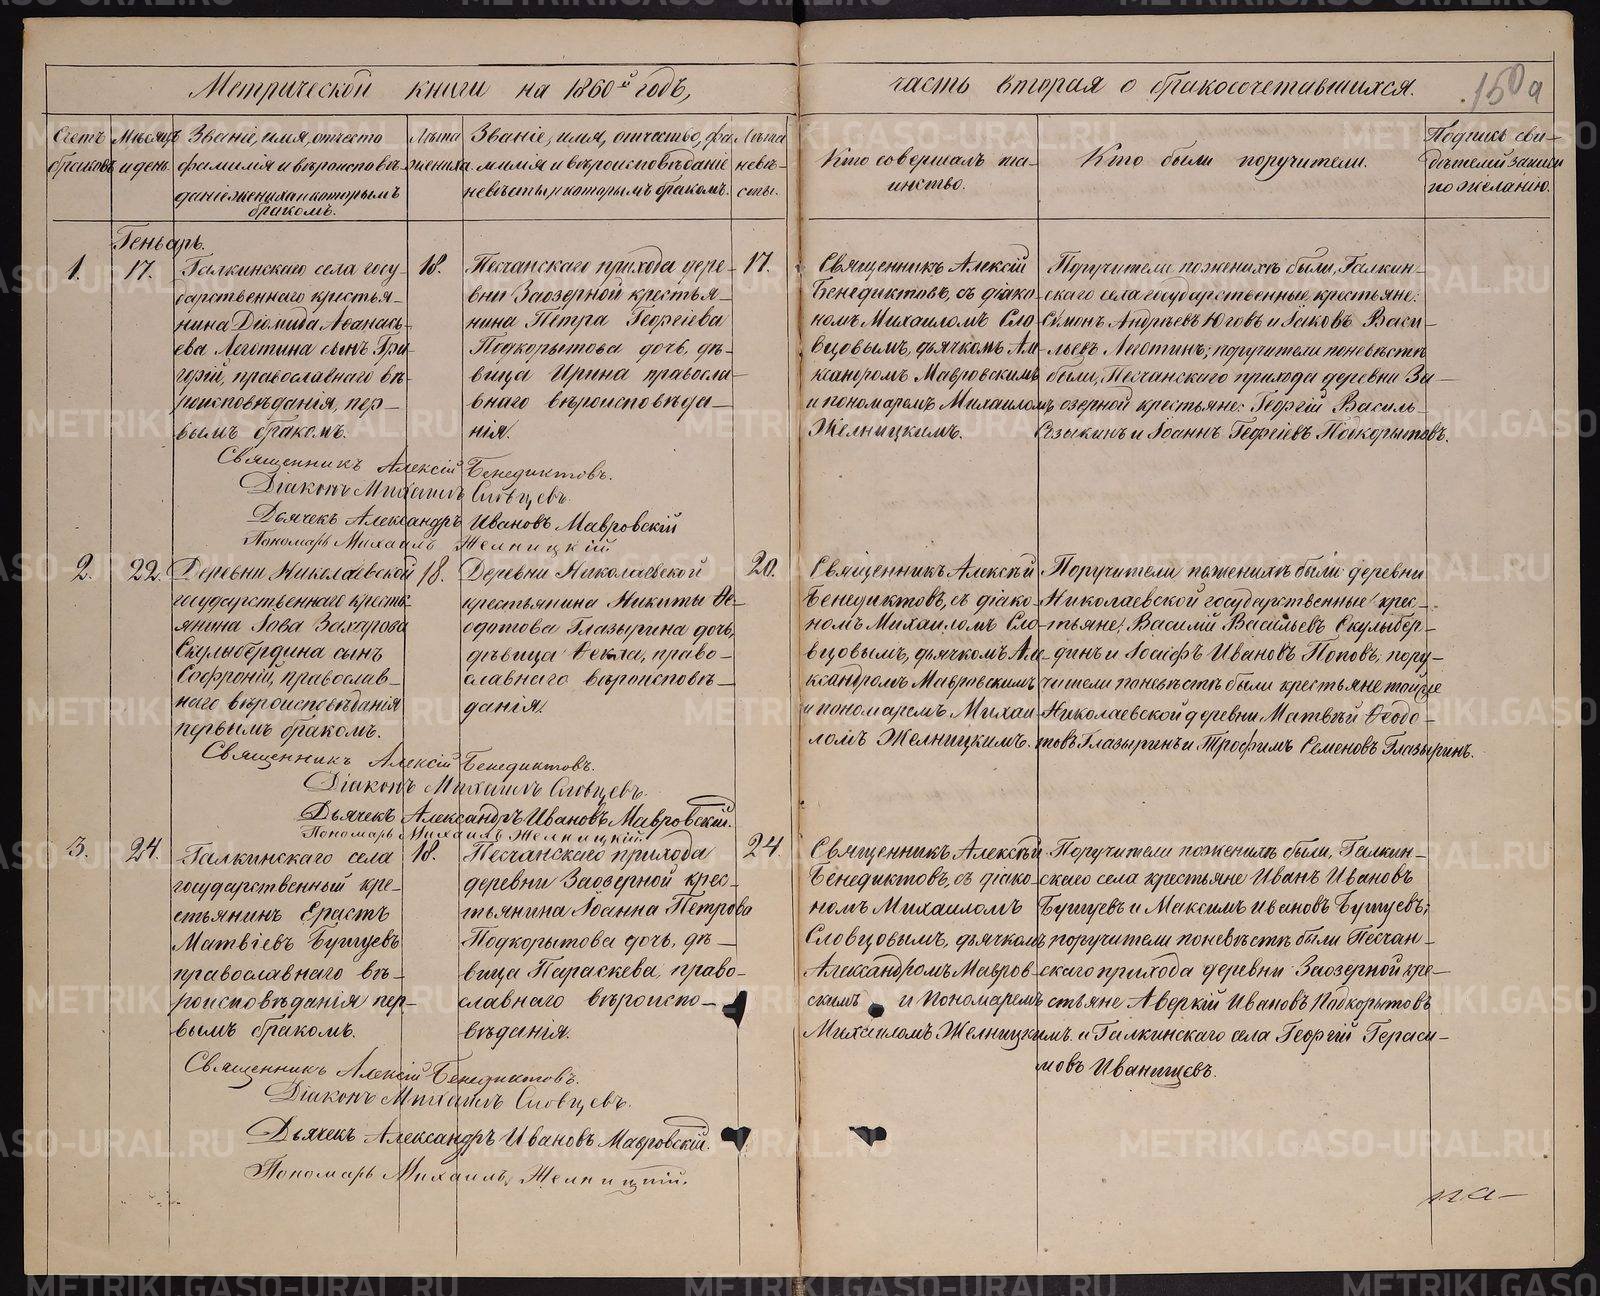 Метрической книги на 1860й годъ,
часть вторая о бракосочетавшихся.
150а
Счетъ браковъ
Мѣсяцъ и день
Званіе, имя, отчество
фамилія и вѣроисповѣ-
даніе жениха и которымъ
бракомъ.
Лѣта
жениха
Званіе, имя, отчество, фа-
милія и вѣроисповѣданіе
невѣсты, и которымъ бракомъ.
Лѣта
невѣ-
сты.
Кто совершалъ та-
инство.
Кто были поручители.
Подпись сви-
дѣтелей записи
по желанію.
Геньварь.
1.
17.
Галкинскаго села госу-
дарственнаго крестья-
нина Діомида Аѳанась-
ева Леготина сынъ Гри-
горій, православнаго вѣ-
роисповѣданія, пер-
вымъ бракомъ.
18.
Песчанскаго прихода дере-
вни Заозерной крестья-
нина Петра Георгіева
Подкорытова дочь, дѣ-
вица Ирина правосла-
внаго вѣроисповѣда-
нія.
17.
Священникъ Алексій
Бенедиктовъ, съ діако-
номъ Михаиломъ Сло-
вцовымъ, дьячкомъ Але-
ксандромъ Мавровскимъ
и пономаремъ Михаиломъ
Желницкимъ.
Поручители по женихѣ были, Галкин-
скаго села государственные крестьяне:
Симонъ Андреевъ Юговъ и Іаковъ Васи-
льевъ Леготинъ; поручители по невѣстѣ
были, Песчанскаго прихода деревни За-
озерной крестьяне: Георгій Василь-
и Іоаннъ Георгіевъ Подкорытовъ.
Священникъ Алексій Бенедиктовъ.
Діаконъ Михаилъ Словцевъ.
Дьячекъ Александръ Ивановъ Мавровскій
Пономарь Михаилъ Желницкій
2.
22.
Деревни Николаевской
государственнаго кресть-
янина Іова Захарова
Скулыбердина сынъ
Софроній, православ-
наго вѣроисповѣданія
первымъ бракомъ.
18.
Деревни Николаевской
крестьянина Никиты Ѳе-
одотова Глазырина дочь,
дѣвица Ѳекла, право-
славнаго вѣроисповѣ-
данія.
20.
Священникъ Алексѣй
Бенедиктовъ, съ діако-
номъ Михаиломъ Сло-
вцовымъ, дьячкомъ Але-
ксандромъ Мавровскимъ
и пономаремъ Михаи-
ломъ Желницкимъ.
Поручители по женихѣ были деревни
Николаевской государственные крес-
тьяне, Василій Васильевъ Скулыбер-
динъ и Іосифъ Ивановъ Поповъ; пору-
чители по невѣстѣ были крестьяне той же
Николаевской деревни Матвѣй Ѳеодо-
товъ Глазыринъ и Трофимъ Семеновъ Глазыринъ.
Священникъ Алексій Бенедиктовъ.
Діаконъ Михаилъ Словцевъ.
Дьячекъ Александръ Ивановъ Мавровскій.
Пономарь Михаилъ Желницкій.
3.
24.
Галкинскаго села
государственный кре-
стьянинъ Ерастъ
Матвіевъ Бушуевъ
православнаго вѣ-
роисповѣданія пер-
вымъ бракомъ.
18.
Песчанскаго прихода
деревни Заозерной крес-
тьянина Іоанна Петрова
Подкорытова дочь, дѣ-
вица Параскева, право-
славнаго вѣроиспо-
вѣданія.
24.
Священникъ Алексѣй
Бенедиктовъ, съ діако-
номъ Михаиломъ
Словцовымъ, дьячкомъ
Александромъ Мавров-
скимъ и пономаремъ
Михаиломъ Желницкимъ.
Поручители по женихѣ были, Галкин-
скаго села крестьяне Иванъ Ивановъ
Бушуевъ и Максимъ Ивановъ Бушуевъ;
поручители по невѣстѣ были Песчан-
скаго прихода деревни Заозерной кре-
стьяне Аверкій Ивановъ Подкорытовъ
и Галкинскаго села Георгій Гераси-
мовъ Иванищевъ.
Священникъ Алексій Бенедиктовъ.
Діаконъ Михаилъ Словцевъ.
Дьячекъ Александръ Ивановъ Мавровскій.
Пономарь Михаилъ Желницкій.
па-
METRIKI.GASO-URAL.RU